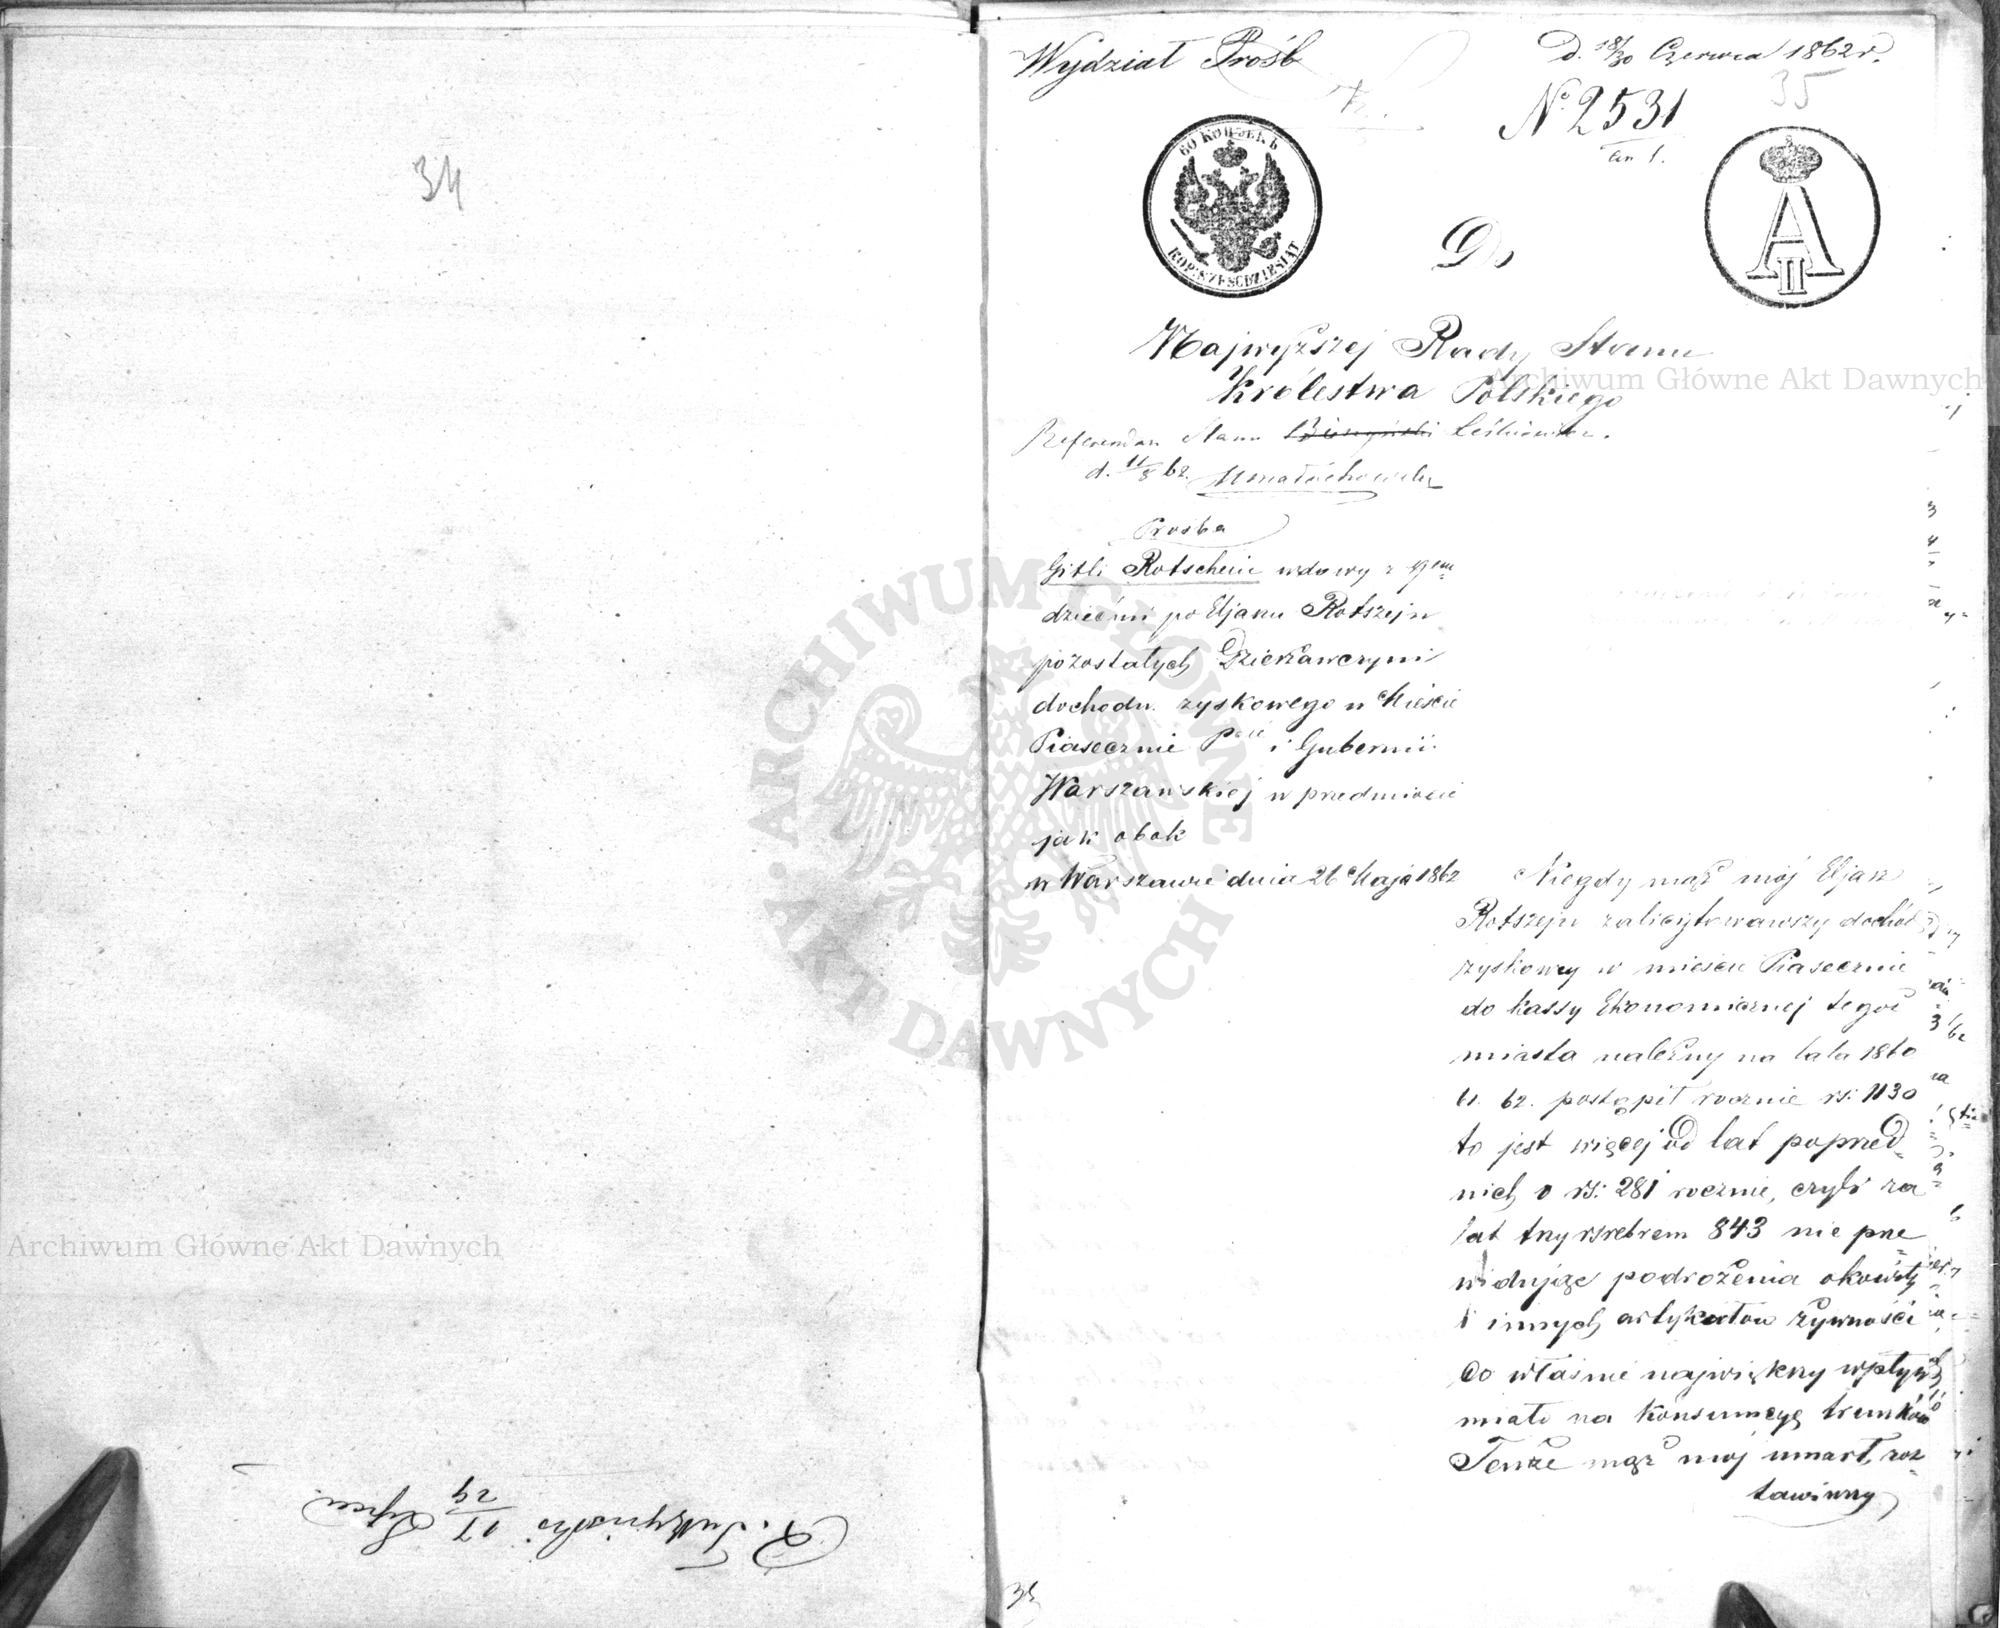 34
Wydział Próśb
D. 18/30 Czerwca 1862 r.
35
№ 2531
an 1.
60 КОПѢЕКЪ
KOP: SZEŚĆDZIESIĄT
A II
Do
Najwyższej Rady Stanu
Królestwa Polskiego
Referendarz Stanu
d. 11/8 62.
Prośba
Gitli Rotschein wdowy z
dziećmi po Eljaszu Rotszejn
pozostałych Dzierżawczyni
dochodu zyskowego w Mieście
Piasecznie Pcie i Gubernii
Warszawskiej w przedmiocie
jak obok
w Warszawie dnia 26 Maja 1862
Niegdy mąż mój Eljasz
Rotszejn zalicytowawszy dochód
zyskowy w mieście Piasecznie
do kassy Ekonomicznej tegoż
miasta należny na lata 1860
61. 62. postąpił rocznie rs: 1130
to jest więcej od lat poprzed=
nich o rs: 281 rocznie, czyli za
lat trzy rsrebrem 843 nie prze=
widując podrożenia okowity
i innych artykułów żywności
co właśnie największy wpływ
miało na konsumcyę trunków
Tenże mąż mój umarł, zos=
tawiwszy
17/29 Lipca
ARCHIWUM GŁÓWNE AKT DAWNYCH
Archiwum Główne Akt Dawnych
Archiwum Główne Akt Dawnych